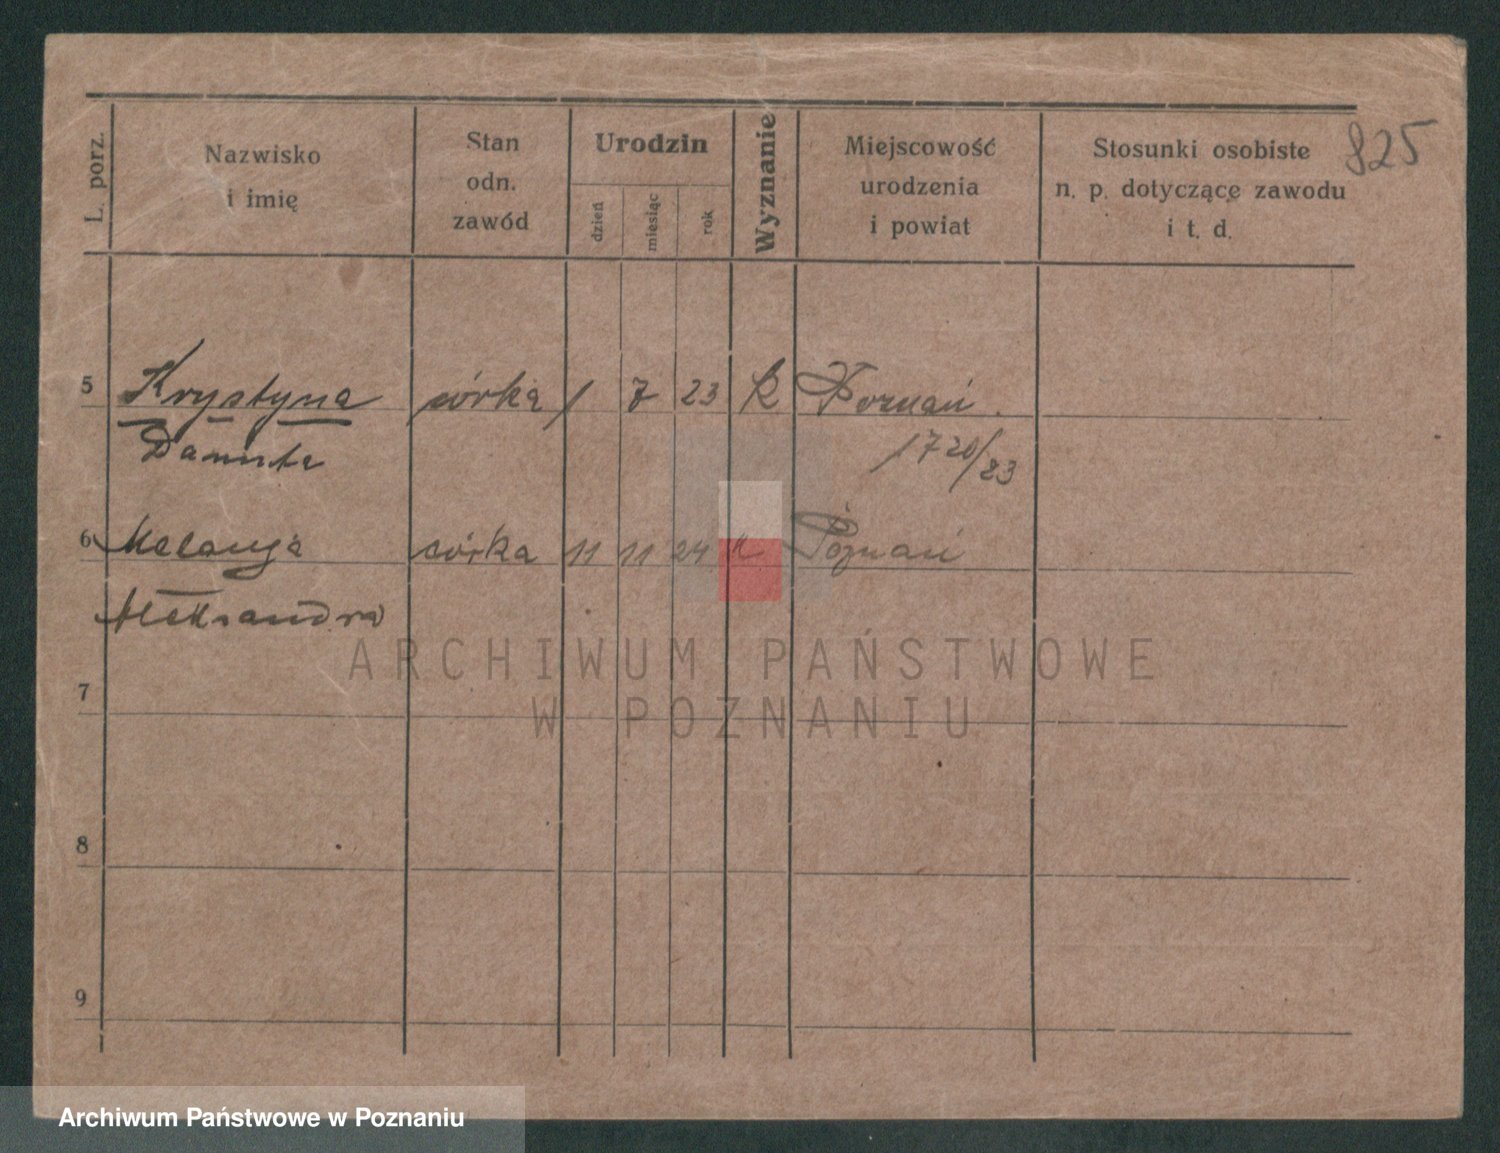 825
L. porz.
Nazwisko
i imię
Stan
odn.
zawód
Urodzin
dzień
miesiąc
rok
Wyznanie
Miejscowość
urodzenia
i powiat
Stosunki osobiste
n. p. dotyczące zawodu
i t. d.
5 Krystyna córka 1 7 23 K Poznań
Danuta 1720/23
6 Melanja córka 11 11 24 K Poznań
Aleksandra
ARCHIWUM PAŃSTWOWE
W POZNANIU
7
8
9
Archiwum Państwowe w Poznaniu